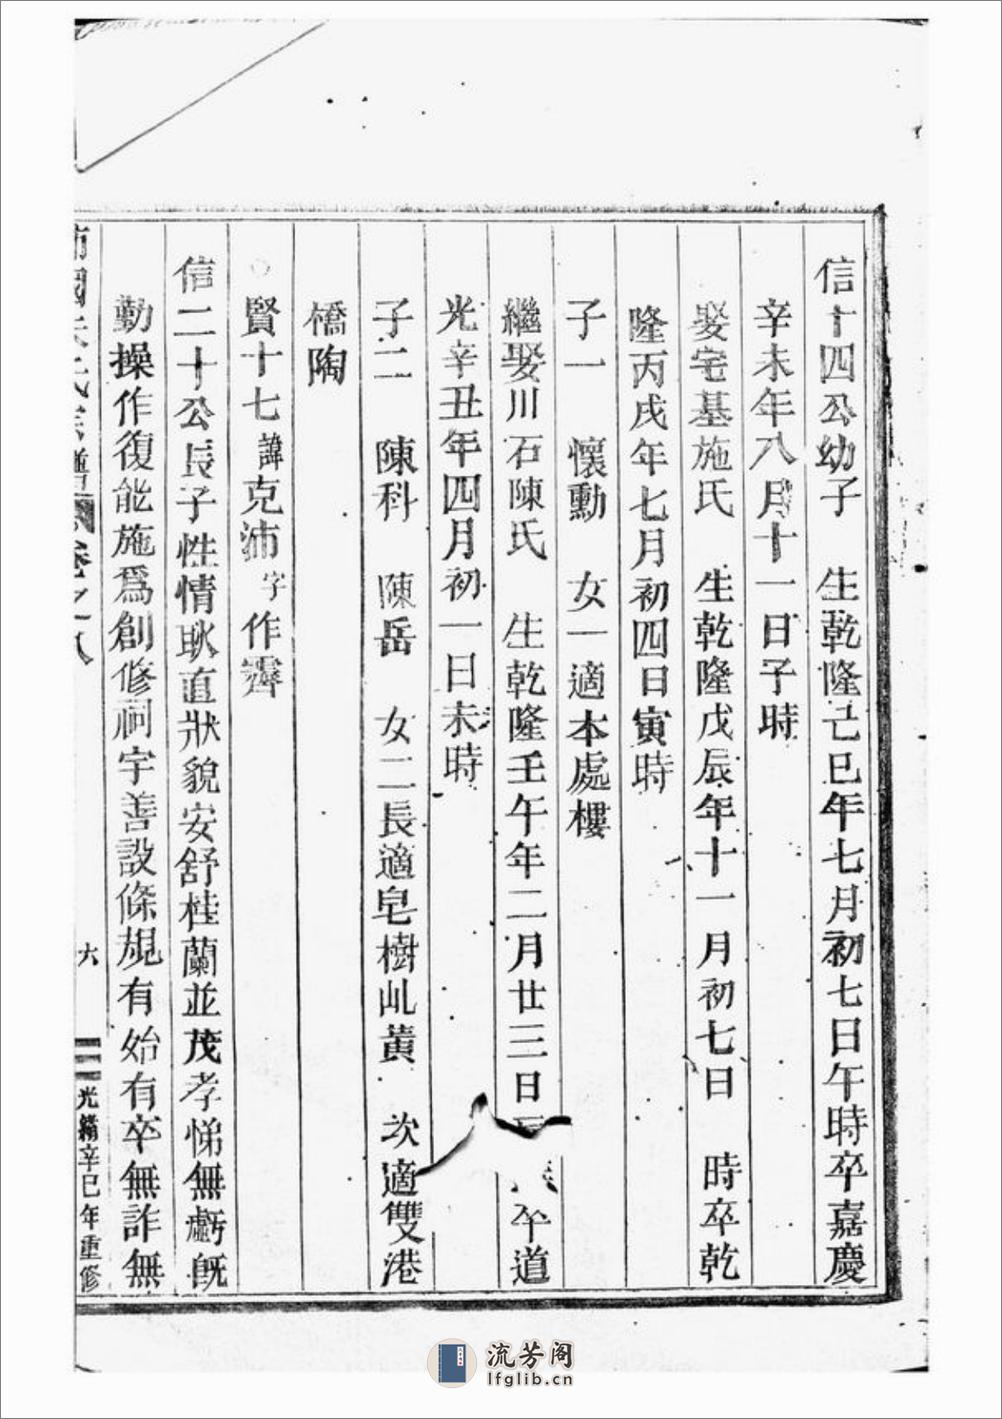 信十四公幼子 生乾隆己巳年七月初七日午時卒嘉慶
辛未年八月十一日子時
娶宅基施氏 生乾隆戊辰年十一月初七日 時卒乾
隆丙戌年七月初四日寅時
子一 懷勳 女一適本處樓
繼娶川石陳氏 生乾隆壬午年二月廿三日 卒道
光辛丑年四月初一日未時
子二 陳科 陳岳 女二長適皂樹乢黃 次適雙港
橋陶
○賢十七諱克沛字作霽
信二十公長子性情耿直狀貌安舒桂蘭並茂孝悌無虧旣
勤操作復能施為創修祠宇善設條規有始有卒無詐無
卷之八
六
光緒辛巳年重修
流芳阁
lfglib.cn